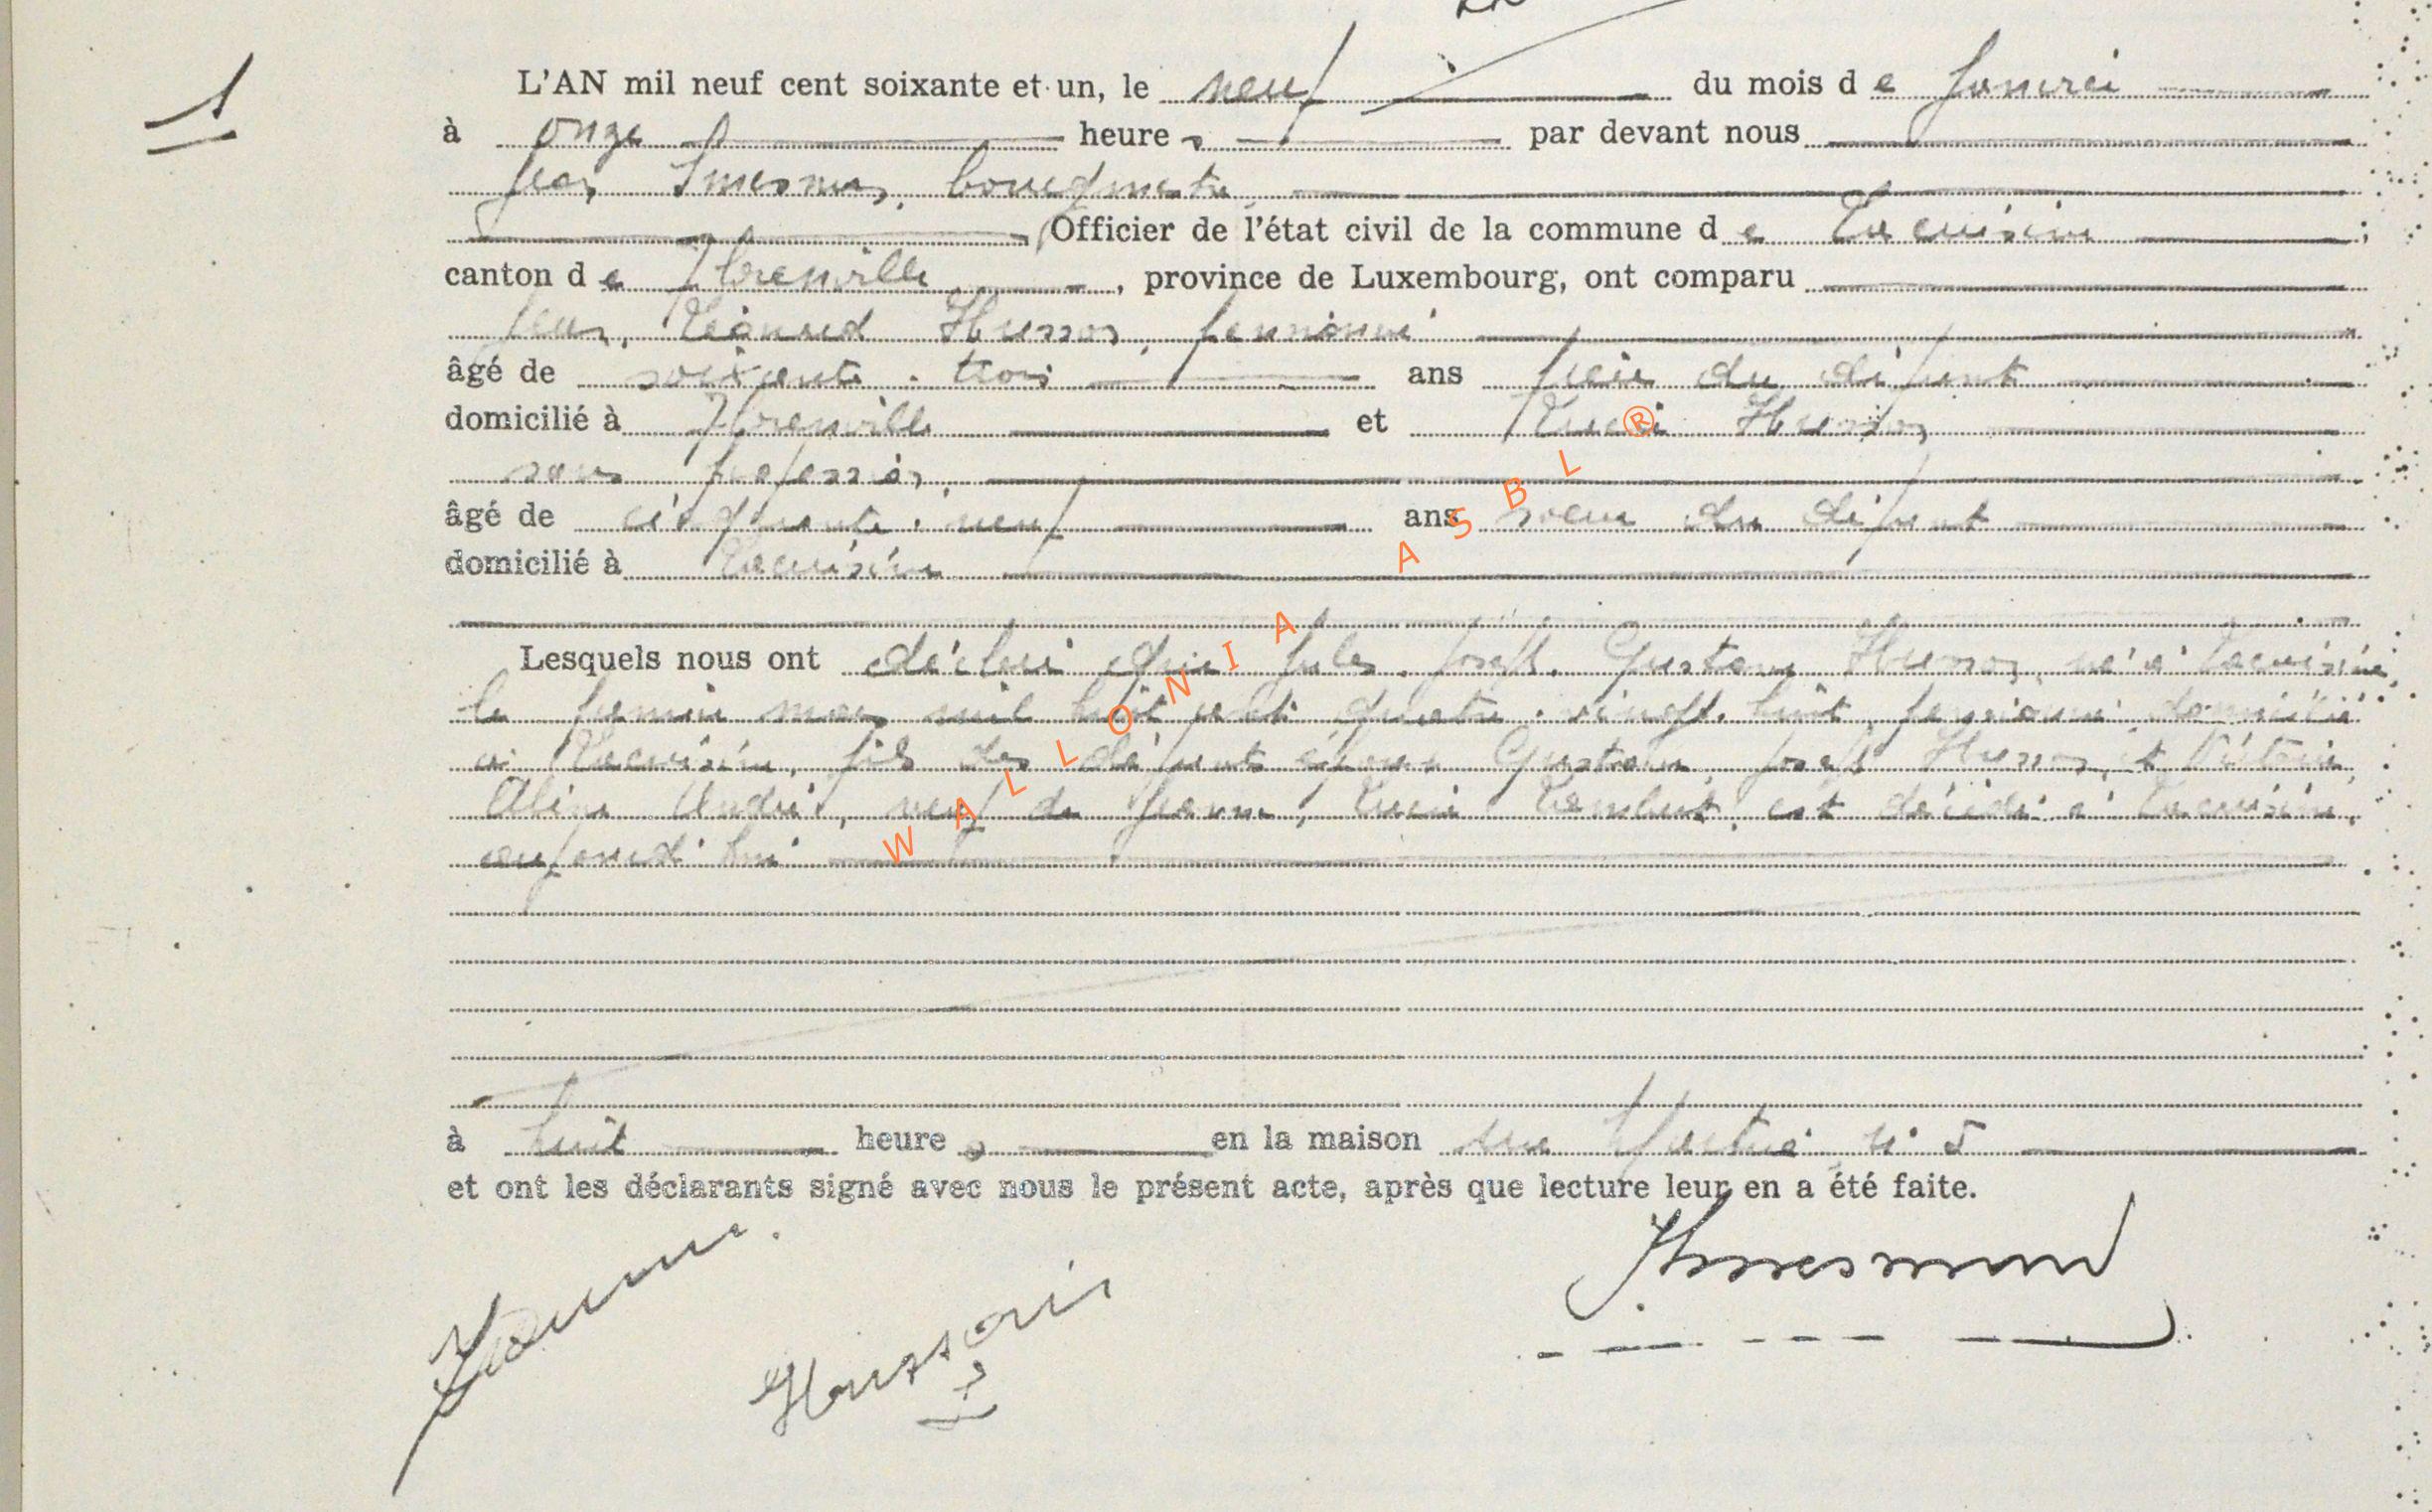 1
L'AN mil neuf cent soixante et un, le neuf du mois de Janvier
à onze heures par devant nous
Jean bourgmestre
Officier de l'état civil de la commune de Lacuisine
canton de Florenville, province de Luxembourg, ont comparu
Jean, Léonard Husson, pensionné
âgé de soixante-trois ans frère du défunt
domicilié à Florenville et Lucie Husson
sans profession,
âgé de cinquante-neuf ans soeur du défunt
domicilié à Lacuisine
Lesquels nous ont déclaré que Jules, Joseph, Gustave Husson, né à Lacuisine
le premier mars mil huit cent quatre-vingt-huit, pensionné domicilié
à Lacuisine, fils des défunts époux Gustave, Joseph Husson, et
Aline André, veuf de Jeanne, Lucie Lambert, est décédé à Lacuisine,
aujourd'hui
à huit heures en la maison rue n° 5
et ont les déclarants signé avec nous le présent acte, après que lecture leur en a été faite.
WALLONIA ASBL ®